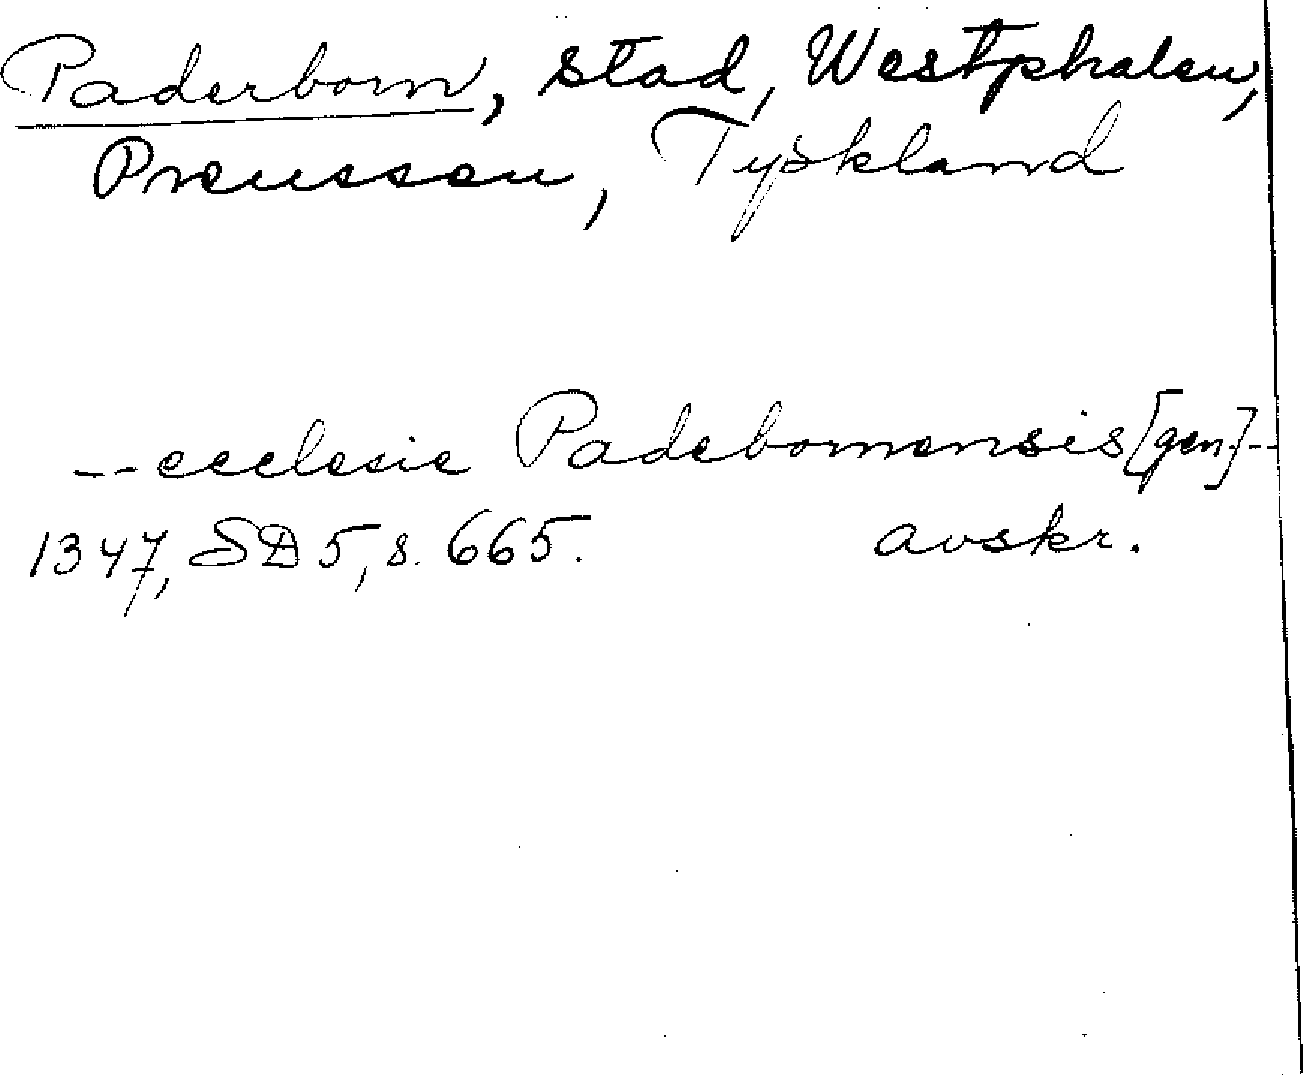 Paderborn, stad, Westphalen,
Preussen, Tyskland
-- ecclesie Padebornensis [gen] --
1347, SD 5, s. 665. avskr.